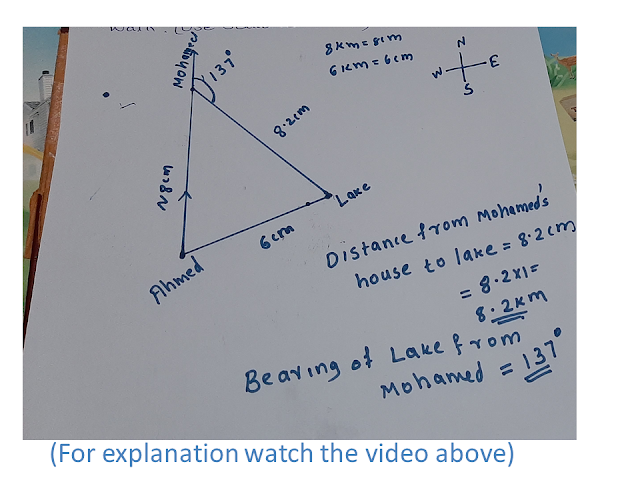 8km=8cm
6km=6cm
N
W E
S
Mohamed
137°
8.2cm
N 8cm
Lake
6cm
Ahmed
Distance from Mohamed's
house to lake = 8.2cm
= 8.2x1=
8.2km
Bearing of Lake from
Mohamed = 137°
(For explanation watch the video above)